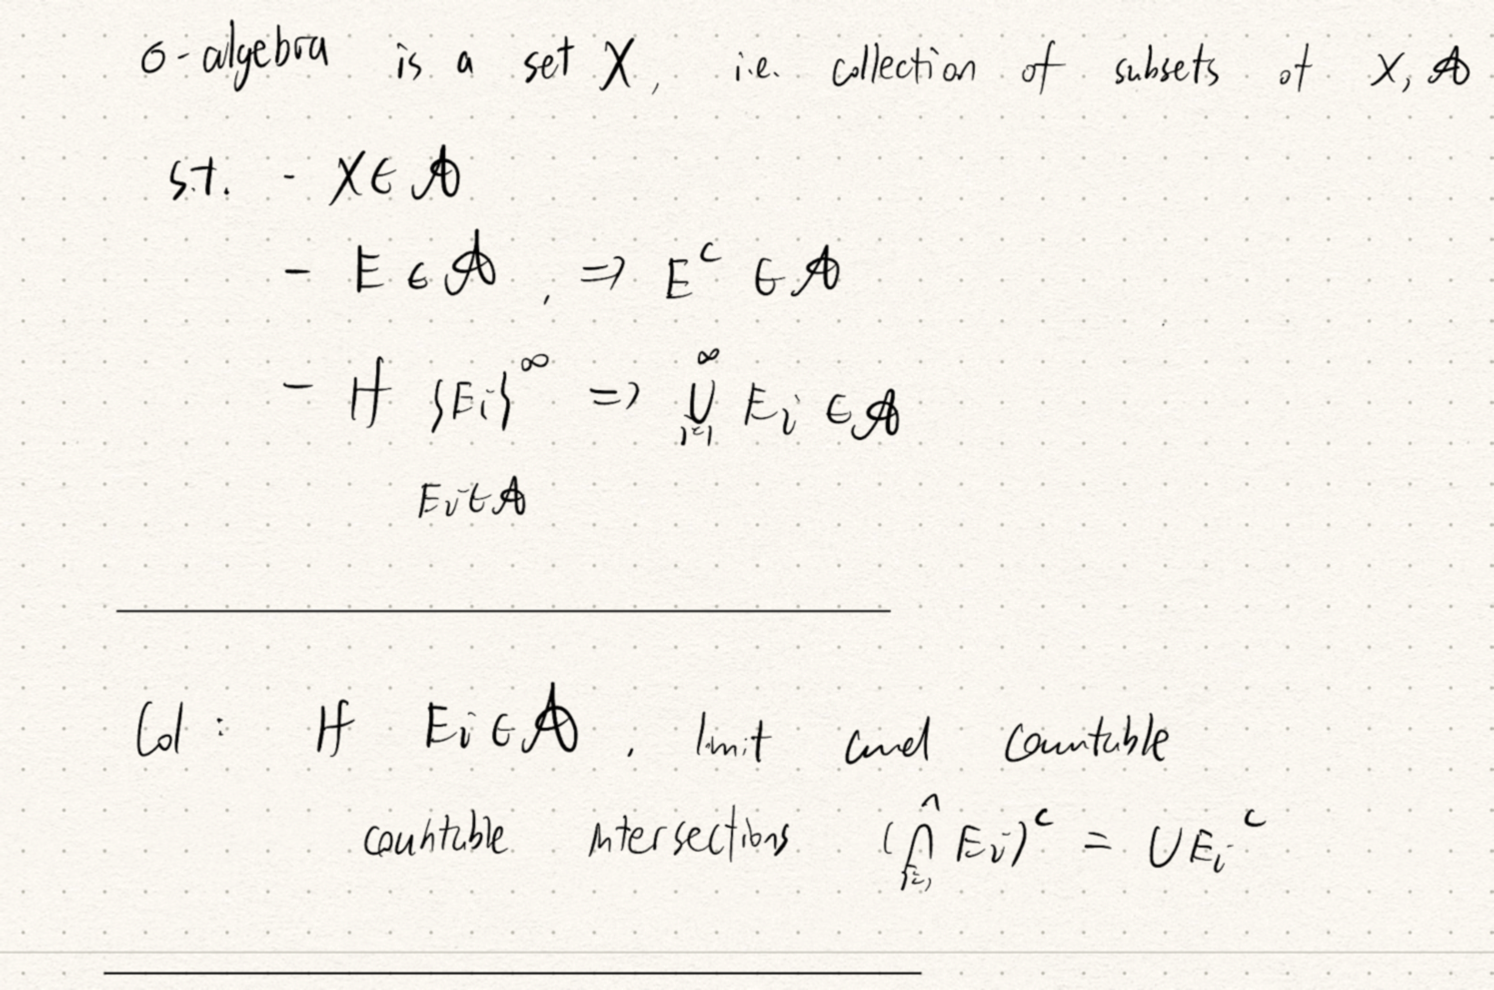 σ-algebra is a set X, i.e. collection of subsets of X, 𝒜
s.t. - X ∈ 𝒜
- E ∈ 𝒜, ⇒ E^c ∈ 𝒜
- If {Ei}^∞ ⇒ ∞⋃i=1 Ei ∈ 𝒜
Ei ∈ 𝒜
Col : If Ei ∈ 𝒜. limit and countable
countable intersections (n⋂i=1 Ei)^c = ∪ Ei^c